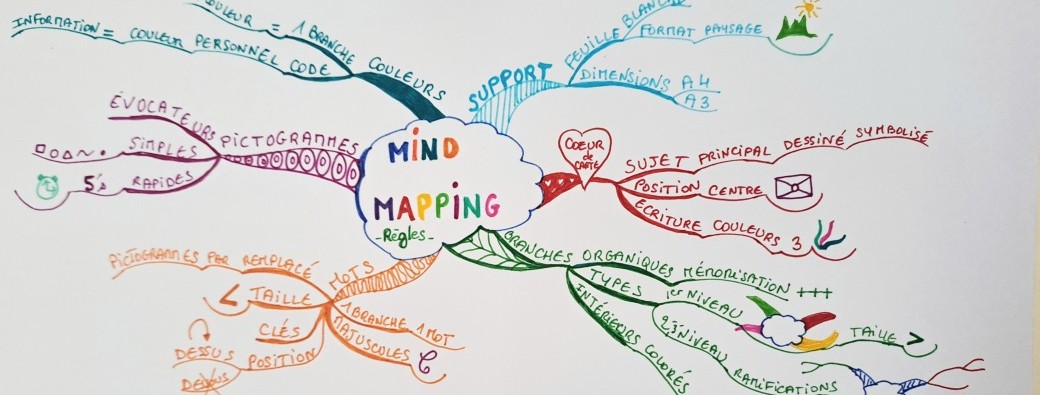 MIND
MAPPING
-Règles-
COULEURS
COULEUR = 1 BRANCHE
INFORMATION = COULEUR PERSONNEL CODE
SUPPORT
FEUILLE BLANCHE
FORMAT PAYSAGE
DIMENSIONS A4
A3
COEUR
de
CARTE
SUJET PRINCIPAL DESSINÉ SYMBOLISÉ
POSITION CENTRE
ECRITURE COULEURS 3
BRANCHES ORGANIQUES MÉMORISATION +++
TYPES
1er NIVEAU
TAILLE >
2e3e NIVEAU RAMIFICATIONS
INTÉRIEURS COLORÉS
MOTS
1 BRANCHE 1 MOT
MAJUSCULES C
PICTOGRAMMES PAR REMPLACÉ
TAILLE <
CLÉS
POSITION
DESSUS
PICTOGRAMMES
ÉVOCATEURS
SIMPLES
RAPIDES 5s